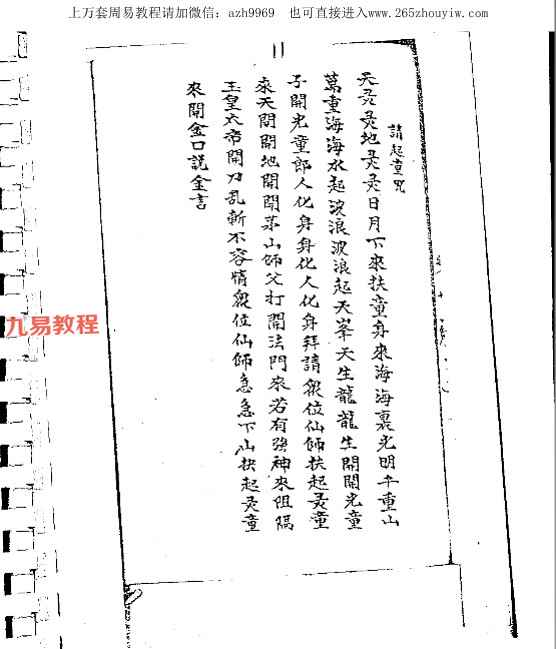 上万套周易教程请加微信：azh9969　也可直接进入www.265zhouyiw.com
11
請起童咒
天灵灵地灵灵日月下來扶童身來海海裏光明千重山
萬重海海水起波浪波浪起天峯天生龍龍生開開光童
子開光童郎人化身身化人化身拜請眾位仙師扶起灵童
來天開開地開開茅山師父打開法門來若有強神來阻隔
玉皇大帝開刀乱斬不容情眾位仙師急急下山扶起灵童
來開金口説金言
九易教程